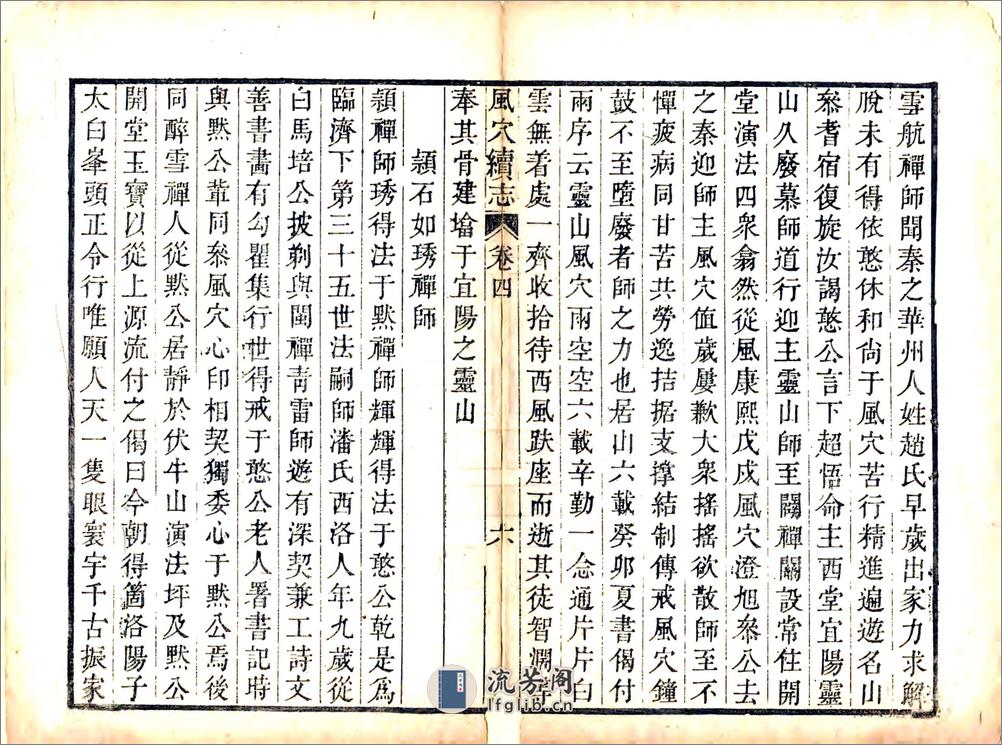 雪航禪師聞秦之華州人姓趙氏早歲出家力求解
脫未有得依憨休和尚于風穴苦行精進遍遊名山
叅耆宿復旋汝謁憨公言下超悟命主西堂宜陽靈
山久廢慕師道行迎主靈山師至闢禪關設常住開
堂演法四衆翕然從風康熙戊戍風穴澄旭叅公去
之秦迎師主風穴值歲屢歉大衆搖搖欲散師至不
憚疲病同甘苦共勞逸拮据支撑結制傳戒風穴鐘
鼓不至墮廢者師之力也居山六載癸卯夏書偈付
雨序云靈山風穴雨空空六載辛勤一念通片片白
雲無着處一齊收拾待西風趺座而逝其徒智瀾等
奉其骨建墖于宜陽之靈山
風穴續志 卷四 六
頴石如琇禪師
頴禪師琇得法于默禪師輝輝得法于憨公乾是爲
臨濟下第三十五世法嗣師潘氏西洛人年九歲從
白馬培公披剃與閩禪青雷師遊有深契兼工詩文
善書畵有勾瞿集行世得戒于憨公老人署書記時
與默公輩同叅風穴心印相契獨委心于默公焉後
同醉雪禪人從默公居靜於伏牛山演法坪及默公
開堂玉寶以從上源流付之偈曰今朝得箇洛陽子
太白峯頭正令行唯願人天一隻眼寰宇千古振家
流芳阁
lfglib.cn